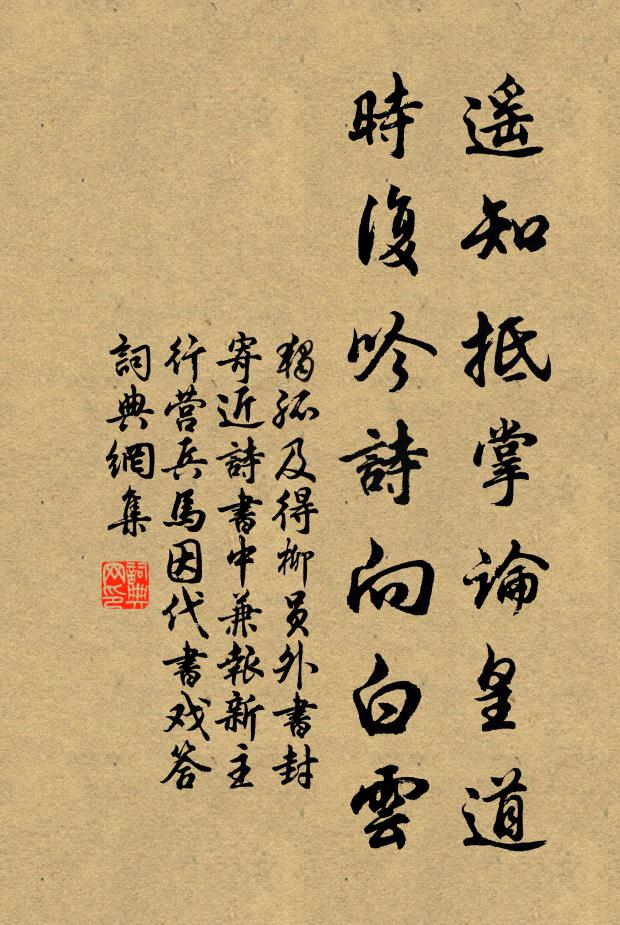 遥知抵掌論皇道
時復吟詩向白雲
獨孤及得柳員外書封
寄近詩書中兼報新主
行营兵馬因代書戏答
詞典網集
詞典网印